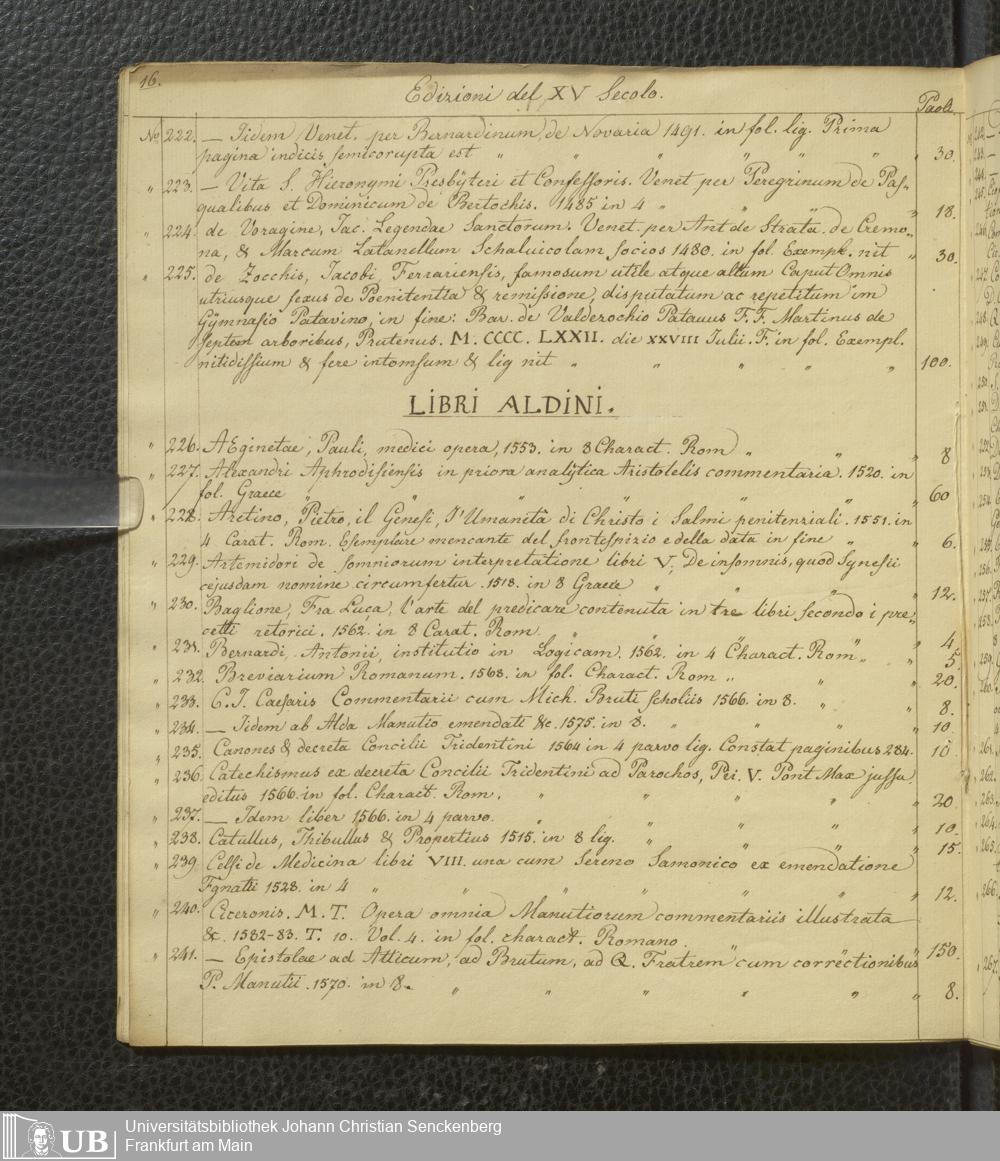 16.
Edizioni del XV Secolo.
Paoli
No 222. — Iidem Venet. per Bernardinum de Novaria 1491. in fol. lig. Prima
pagina indicis semicorupta est " " " " " " 30.
" 223. — Vita S. Hieronymi Presbÿteri et Confessoris. Venet per Peregrinum de Pas„
qualibus et Dominicum de Bertochis. 1485 in 4 " " " " 18.
" 224. de Voragine, Jac. Legendae Sanctorum. Venet. per Ant de Strata. de Cremo„
na, & Marcum Catanellum Schaluicolam socios 1480. in fol. Exempl. nit " 30.
" 225. de Zocchis, Jacobi, Ferrariensis, famosum utile atque altum Caput Omnis
utriusque sexus de Poenitentia & remissione, disputatum ac repetitum im
Gÿmnasio Patavino, in fine: Bar. de Valderochio Patauus F. F. Martinus de
septem arboribus, Prutenus. M. CCCC. LXXII. die XXVIII Iulii. F. in fol. Exempl.
nitidissium & fere intomsum & lig nit " " " " " 100.
LIBRI ALDINI.
" 226. AEginetae, Pauli, medici opera, 1553. in 8 Charact. Rom " " " 8
" 227. Alexandri Aphrodisiensis in priora analÿtica Aristotelis commentaria. 1520. in
fol. Graece " " " " " " " 60
" 228. Aretino, Pietro, il Genesi, l'Umanità di Christo i Salmi penitenziali. 1551. in
4 Carat. Rom. Esemplare mencante del frontespizio e della data in fine " " 6.
" 229. Artemidori de somniorum interpretatione libri V; De insomnis, quod Synesii
cejusdam nomine circumfertur. 1518. in 8 Graece " " " 12.
" 230. Baglione, Fra Luca, l'arte del predicare contenuta in tre libri secondo i pre„
cetti retorici. 1562. in 8 Carat. Rom. " " " " " 4
" 231. Bernardi, Antonii, institutio in Logicam. 1562. in 4 Charact. Rom " " 5
" 232. Breviarium Romanum. 1568. in fol. Charact. Rom " " " 20.
" 233. C. J. Caesaris Commentarii cum Mich. Bruti scholiis 1566. in 8. " " 8.
" 234. — Iidem ab Alda Manutio emendati &c. 1575. in 8. " " " " 10
" 235. Canones & decreta Concilii Tridentini 1564 in 4 parvo lig. Constat paginibus 284. 10
" 236. Catechismus ex decreta Concilii Tridentini ad Parochos, Pii. V. Pont Max jussu
editus 1566. in fol. Charact. Rom. " " " " " 20
" 237. — Idem liber 1566. in 4 parvo. " " " " " 10.
" 238. Catullus, Thibullus & Propertius 1515. in 8 lig. " " " " 15.
" 239. Celsi de Medicina libri VIII. una cum Sereno Samonico ex emendatione
Egnatii 1528. in 4 " " " " " " " 12.
" 240. Ciceronis. M. T. Opera omnia Manutiorum commentariis illustrata
&. 1582-83. T. 10. Vol. 4. in fol. charact. Romano. " " " 150.
" 241. — Epistolae ad Atticum, ad Brutum, ad Q. Fratrem cum corrëctionibus
P. Manutii. 1570. in 8. " " " " " " 8.
UB
Universitätsbibliothek Johann Christian Senckenberg
Frankfurt am Main